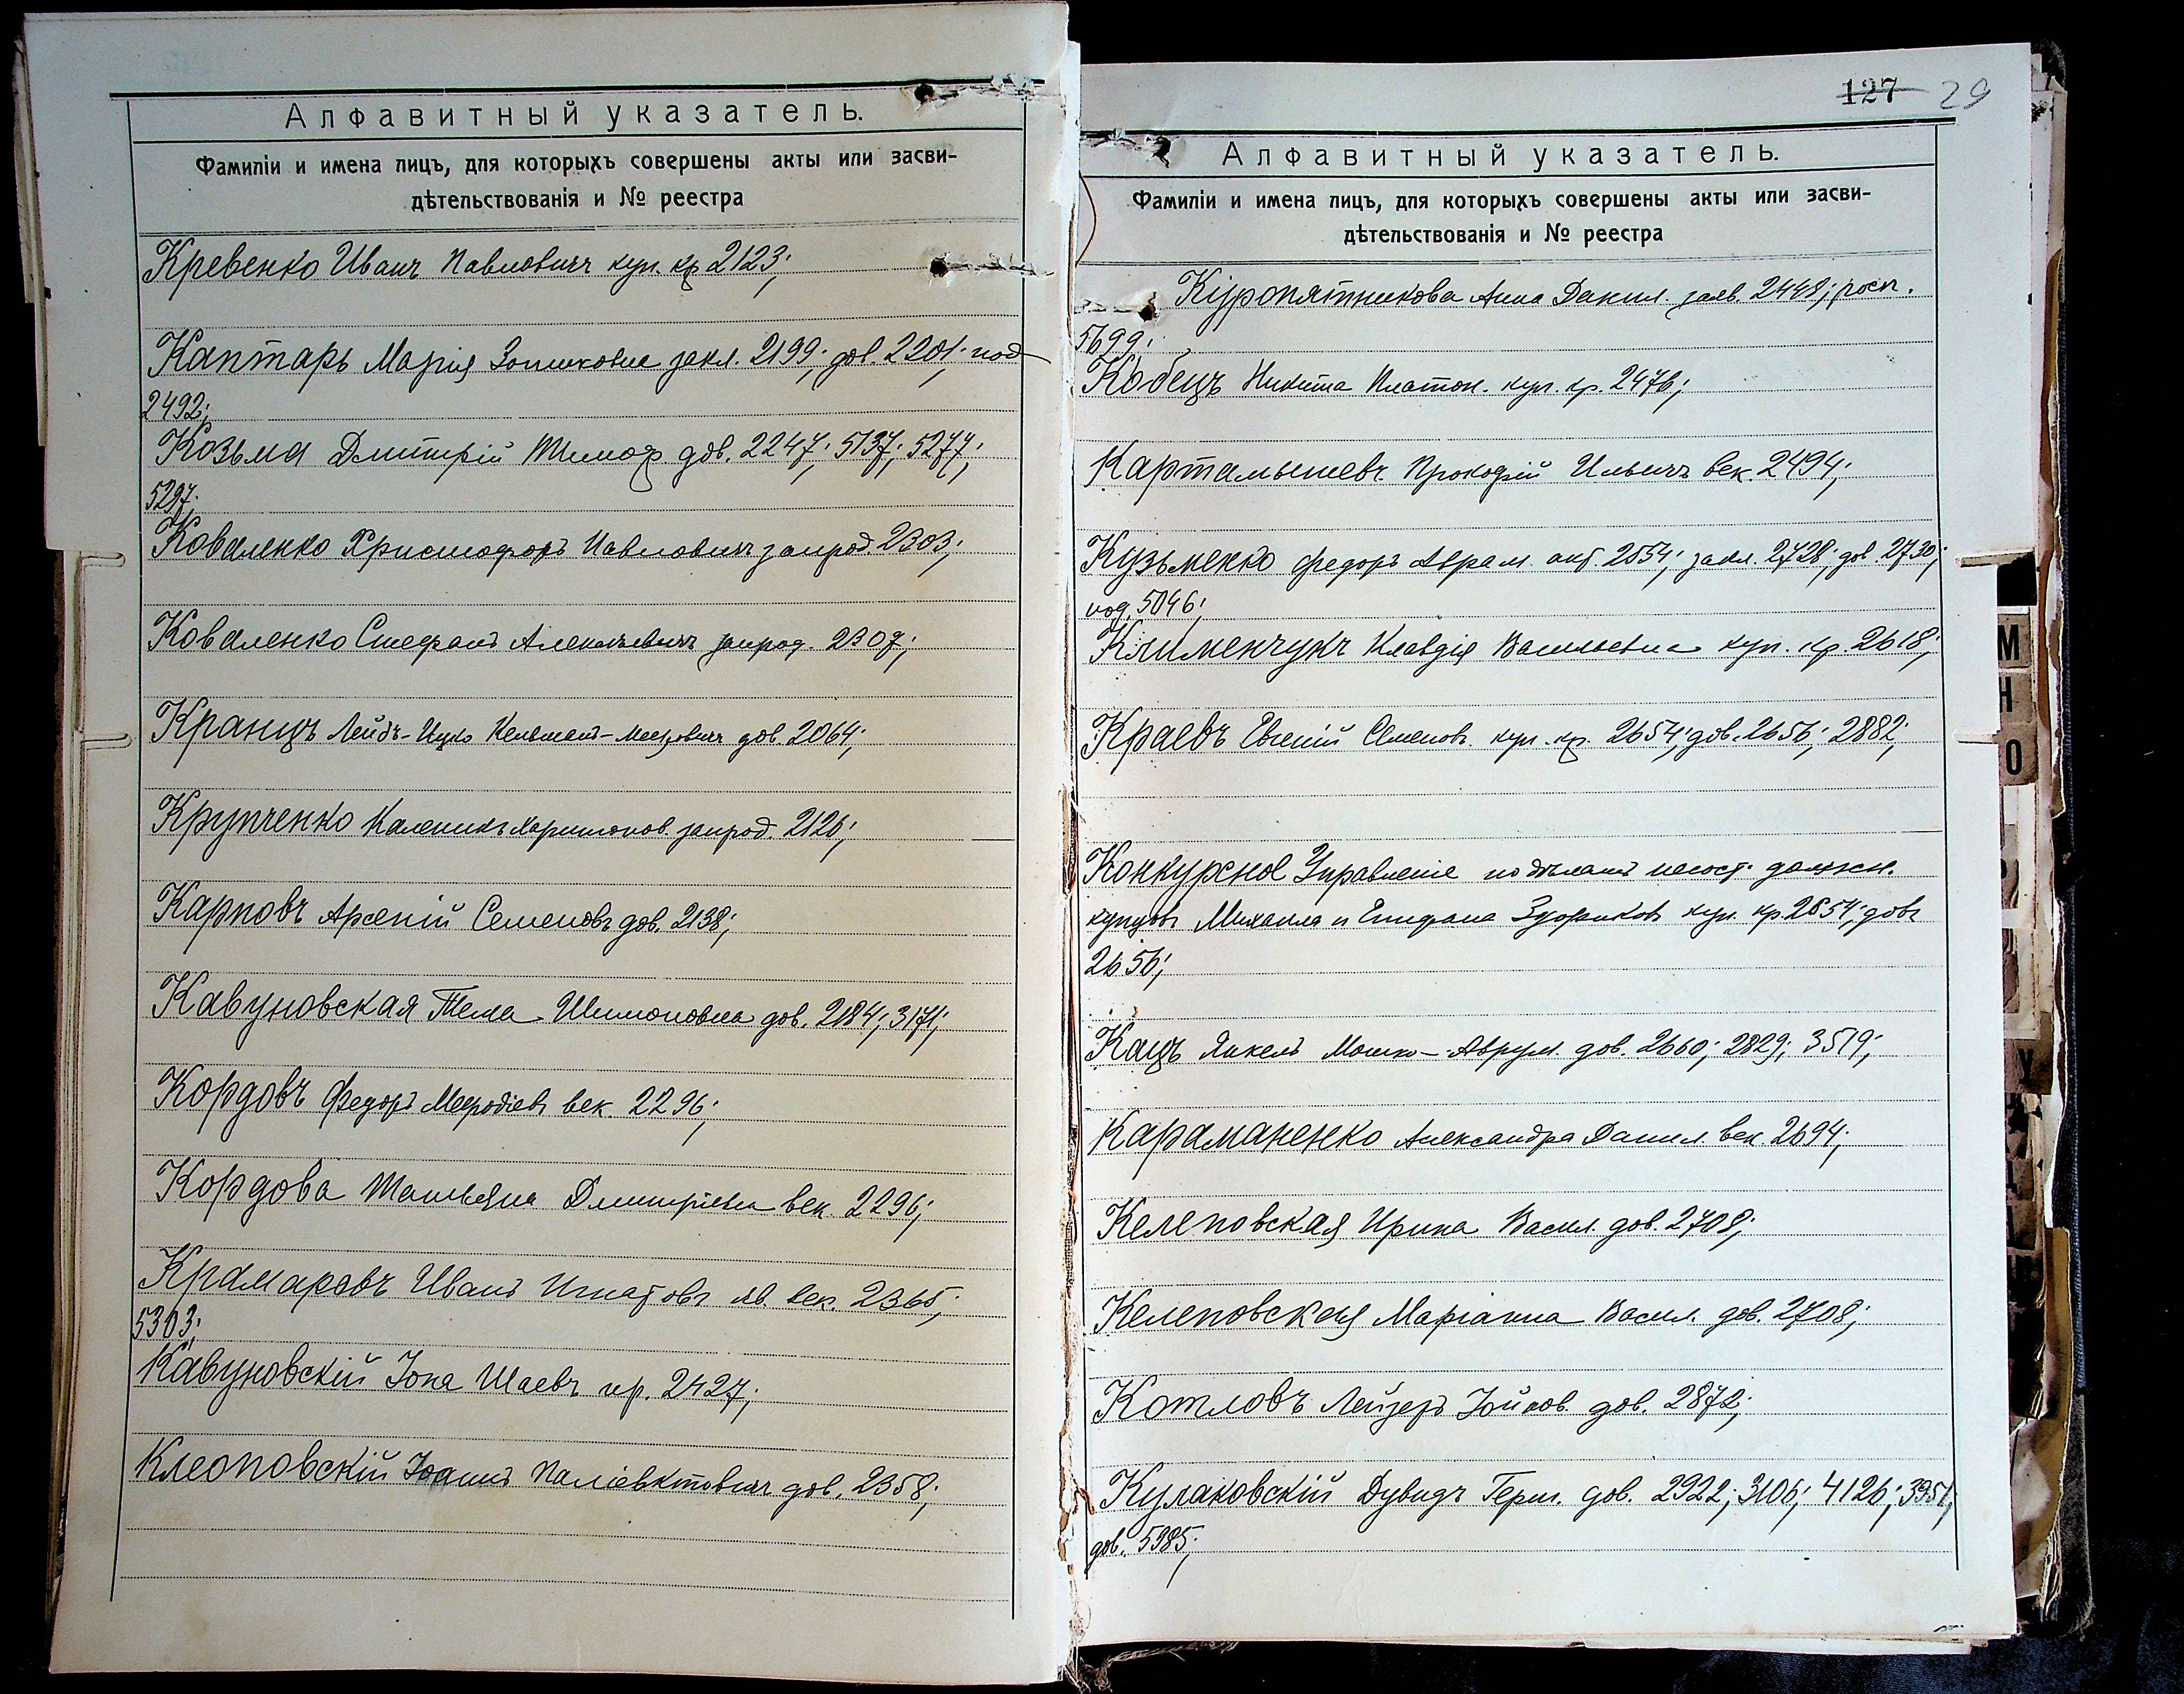 Алфавитный указатель.
Фамиліи и имена лицъ, для которыхъ совершены акты или засви-
дѣтельствованія и № реестра
Кревенко Иванъ Павловичъ куп. кр 2123;
Каптарь Марія закл. 2199; дов. 2201; под
2492;
Козьма Дмитрій Тимоф. дов. 2247; 5137; 5277;
5297;
Коваленко Христофоръ Павловичъ запрод. 2303;
Коваленко Стефанъ Алексѣевичъ запрод. 2307;
Кранцъ Лейбъ-Ицко Кельманъ-Мееровичъ дов. 2064;
Крупченко Каленикъ Харитонов. запрод. 2126;
Карповъ Арсеній Семеновъ дов. 2138;
Кавуновская Тема Шимоновна дов. 2184; 3171;
Кордовъ Федоръ Мефодіевъ век. 2296;
Кордова Татьяна Дмитріевна век. 2296;
Крамаровъ Иванъ Игнатовъ век. 2365;
5303;
Кавуновскій Іона Шаевъ пр. 2427;
Клеоповскій Іоаннъ Поліевктовичъ дов. 2358;
127 29
Алфавитный указатель.
Фамиліи и имена лицъ, для которыхъ совершены акты или засви-
дѣтельствованія и № реестра
Куропятникова Анна Данил. заяв. 2448; росп.
5699;
Кобецъ Никита Платон. куп. кр. 2476;
Картамышевъ Прокофій Ильичъ век. 2494;
Кузьменко Федоръ Аврам. акт. 2554; закл. 2728; дов. 2730;
под. 5046;
Клименчукъ Клавдія Васильевна куп. кр. 2618;
Краевъ Евгеній Семеновъ куп. кр. 2654; дов. 2656; 2882;
Конкурсное Управленіе по дѣламъ несост. должн.
купцовъ Михаила и Епифана куп. кр. 2654; довъ
2656;
Кацъ Янкель Мошко-Аврум. дов. 2660; 2829; 3519;
Караманенко Александра Данил. век. 2694;
Келеповская Ирина Васил. дов. 2708;
Келеповская Маріанна Васил. дов. 2708;
Котловъ Лейзеръ Іойнов. дов. 2872;
Кулаковскій Дувидъ Герш. дов. 2922; 3106; 4126; 3951;
дов. 5985;